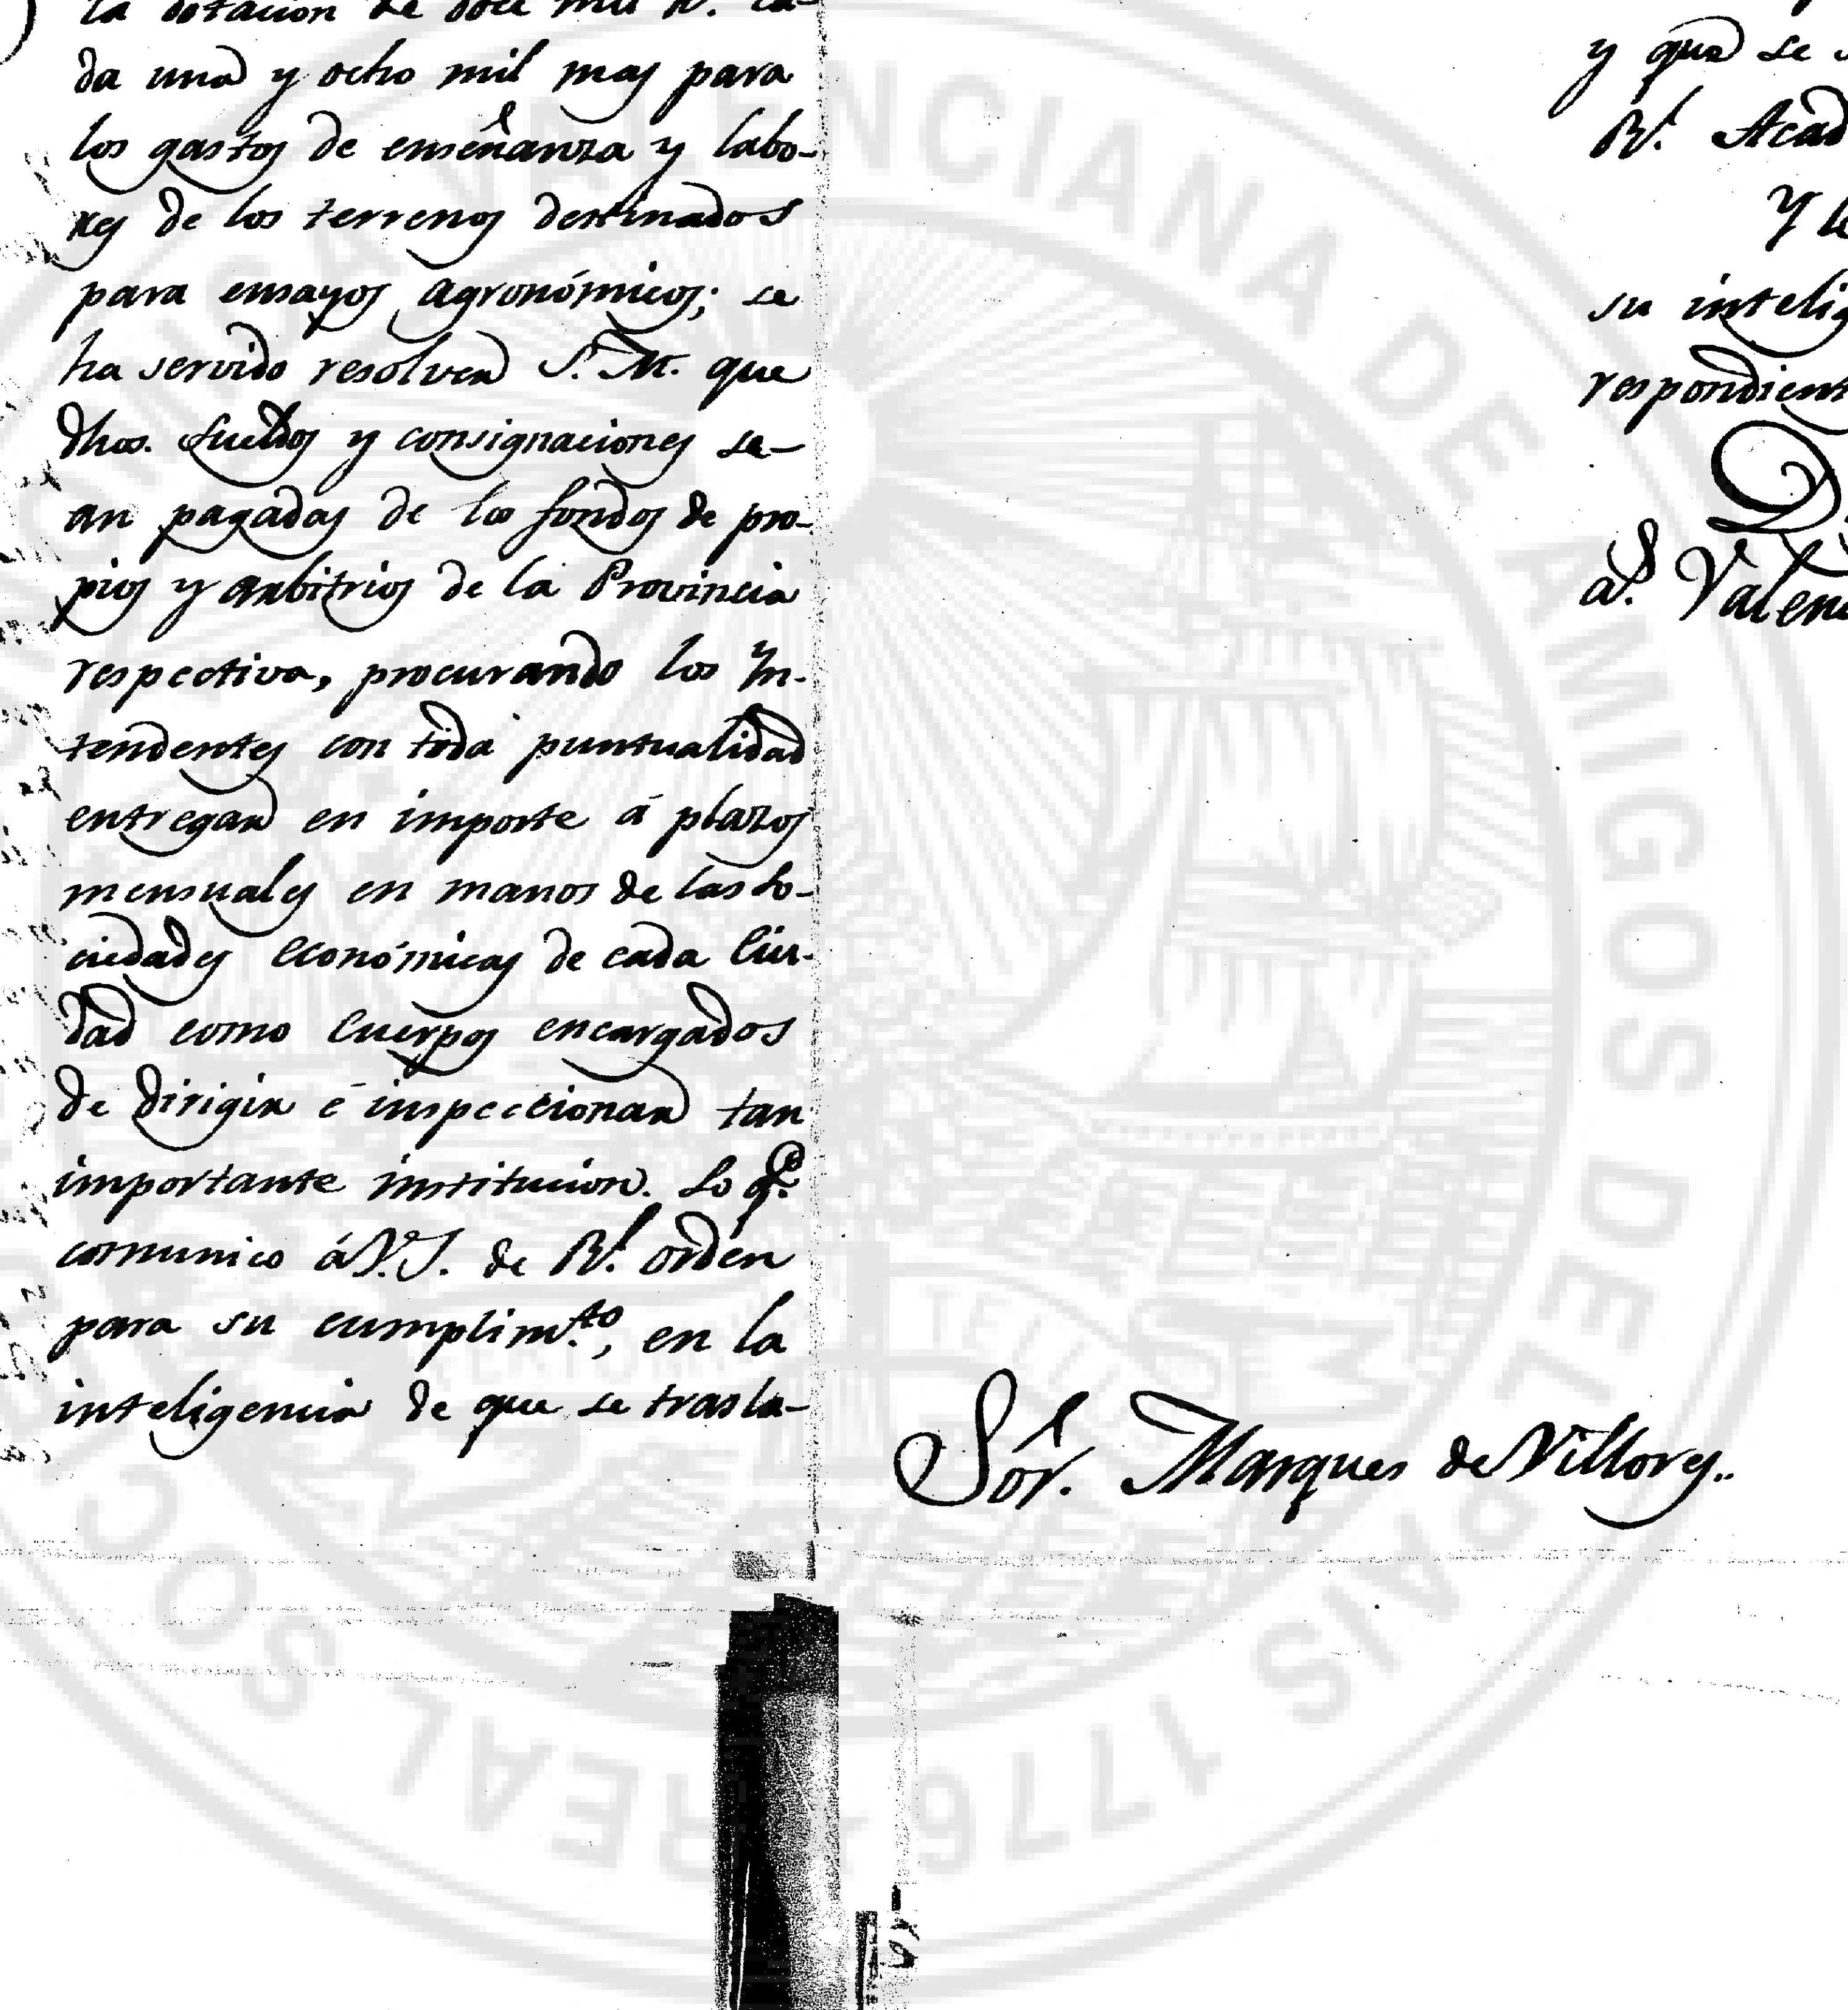 la dotacion de doce mil R.^s ca-
da una y ocho mil mas para
los gastos de enseñanza y labo-
res de los terrenos destinados
para ensayos agronómicos; se
ha servido resolver S. M. que
dhos. sueldos y consignaciones se-
an pagadas de los fondos de pro-
pios y arbitrios de la Provincia
respectiva, procurando los In-
tendentes con toda puntualidad
entregar en importe á plazos
mensuales en manos de las So-
ciedades económicas de cada Ciu-
dad como Cuerpos encargados
de dirigir é inspeccionar tan
importante institucion. Lo q.^e
comunico á V. S. de R.^l orden
para su cumplim.^to, en la
inteligencia de que se trasla-
Sör. Marques de Villores..
y que se
R.^l Acad
Y le
su intelig
respondient
a.^s Valen
VALENCIANA DE AMIGOS DEL PAIS 1776 · REAL SOC